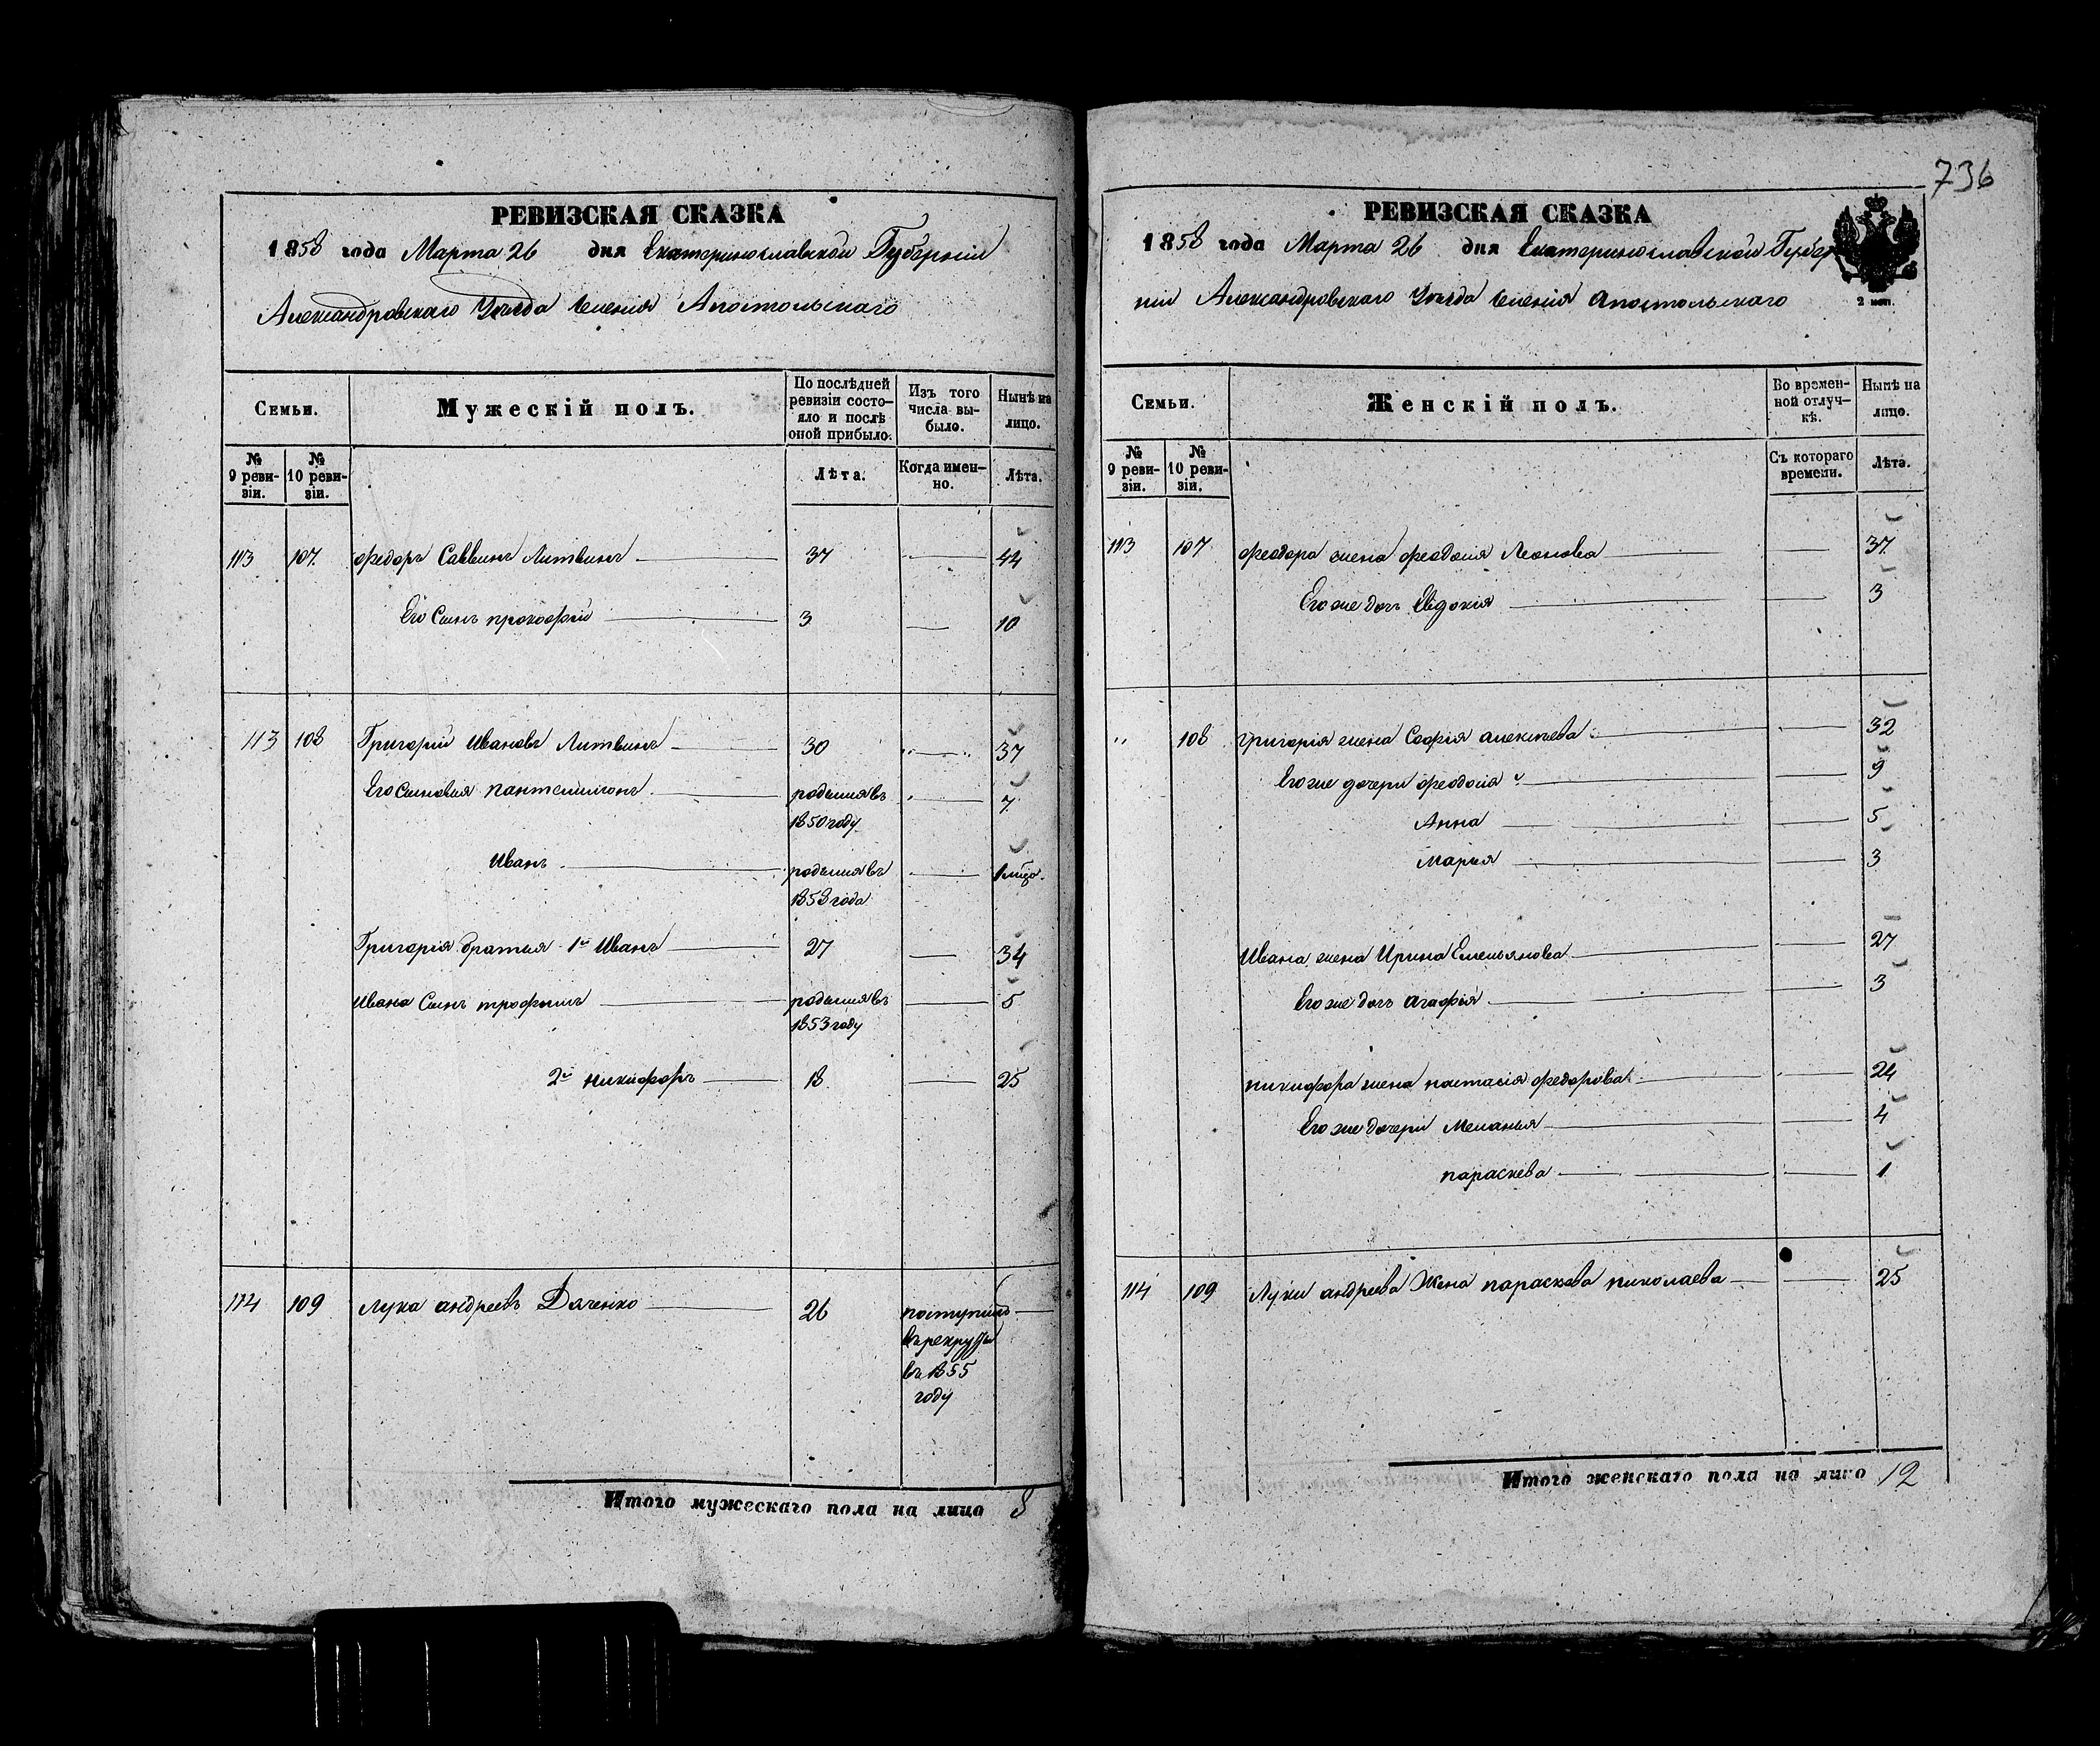 736
РЕВИЗСКАЯ СКАЗКА
1858 года Марта 26 дня Екатеринославской Губерніи
Александровскаго Уѣзда Селенія Апостольскаго
Семьи.
Мужескій полъ.
По послѣдней ревизіи состояло и послѣ оной прибыло.
Изъ того числа выбыло.
Нынѣ на лицо.
№ 9 ревизіи.
№ 10 ревизіи.
Лѣта.
Когда именно.
Лѣта.
113 107. Федоръ Саввинъ Литвинъ 37 44
Его Сынъ прокофій 3 10
113 108 Григорій Ивановъ Литвинъ 30 37
Его Сыновья пантелимонъ родился въ 7
1850 году
Иванъ родился въ 1 мѣся.
1858 года
Григорія братья 1й Иванъ 27 34
Ивана Сынъ трофимъ родился въ 5
1853 году
2й никифоръ 18. 25
114 109 Лука андреевъ Дяченко 26 поступилъ
въ рекруты
въ 1855
году
Итого мужескаго пола на лицо 8
РЕВИЗСКАЯ СКАЗКА
1858 года Марта 26 дня Екатеринославской Губер
ніи Александровскаго Уѣзда Селенія апостольскаго
2 коп.
Семьи.
Женскій полъ.
Во временной отлучкѣ.
Нынѣ на лицо.
№ 9 ревизіи.
№ 10 ревизіи.
Съ котораго времени.
Лѣта.
113 107 Феодора жена феодосія Леонова 37
Его же дочь Евдокія 3
" 108 григорія жена Софія алексѣева 32
Его же дочери феодосія 9
Анна 5
Марія 3
Ивана жена Ирина Емельянова 27
Его же дочь агафія 3
никифора жена настасія федорова 24
Его же дочери Меланья 4
параскева 1
114 109 Луки андреева Жена параскева николаева 25
Итого женскаго пола на лицо 12